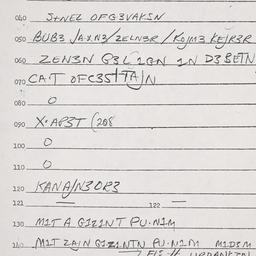 040 J+NEL OFG3VAKIN
050 BUB3 /AXN3/ZELN3R /KOJM3 KEJR3R
060 ZEN3N G3L IGN IN D3 BETN
070 CAT OFC3S|TA/N
080 O
090 X·AP3T (208
100 O
110 O
120 KANA/N3OR3
121 — 122 —
130 M1T A G1Z1NT PU·N1M
140 M1T ZAIN G1Z1NTN PU·N1M M1D1M